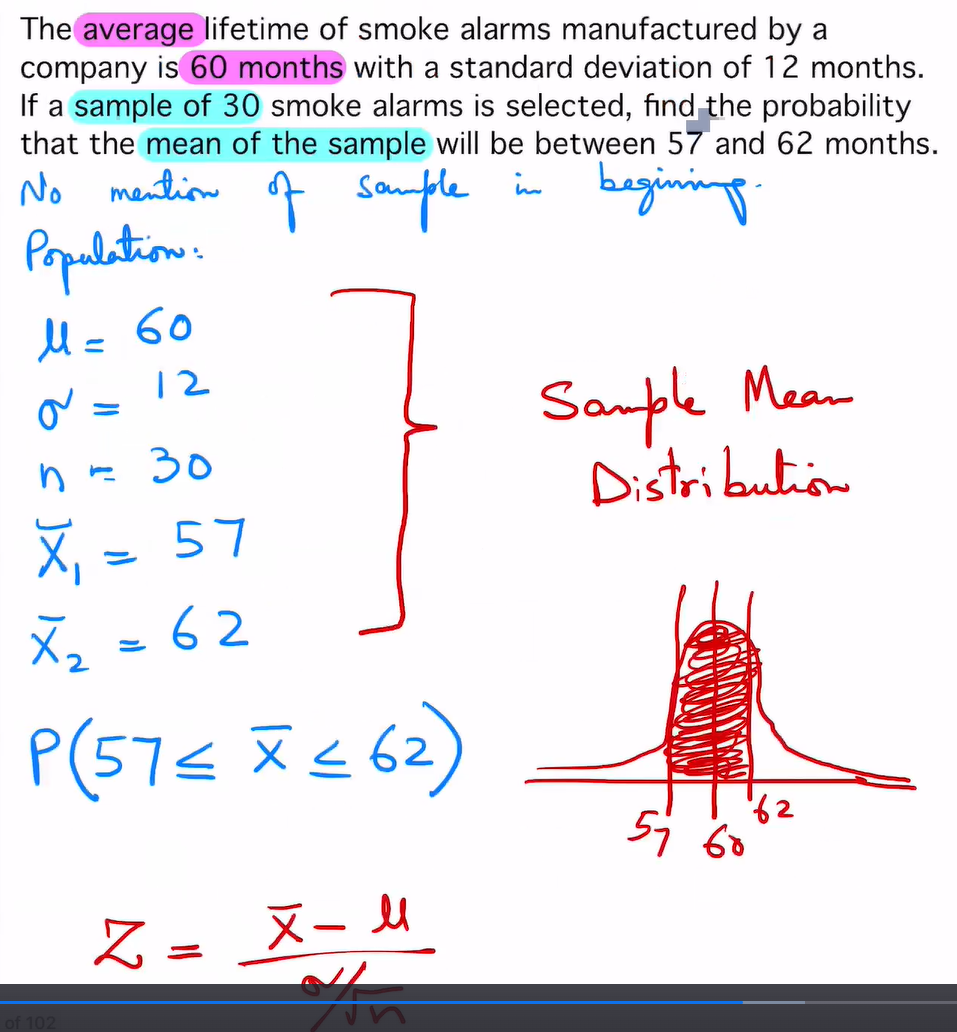 The average lifetime of smoke alarms manufactured by a
company is 60 months with a standard deviation of 12 months.
If a sample of 30 smoke alarms is selected, find the probability
that the mean of the sample will be between 57 and 62 months.
No mention of sample in begining.
Population:
μ = 60
σ = 12
n = 30
x̄₁ = 57
x̄₂ = 62
Sample Mean
Distribution
P(57 ≤ x̄ ≤ 62)
57 60 62
Z = x̄ - μ
σ/√n
of 102